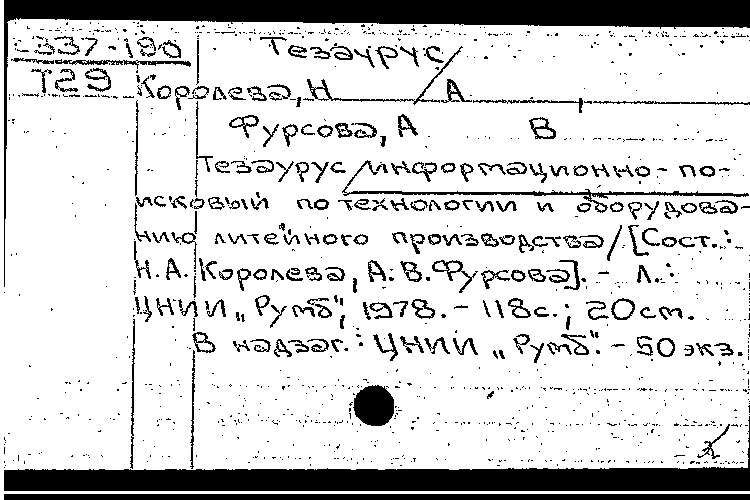 с337-190 Тезаурус
Т29 Королева, Н А
Фурсова, А В
Тезаурус информационно-по-
исковый по технологии и оборудова-
нию литейного производства/[Сост.:
Н.А. Королева, А.В. Фурсова]. - Л.:
ЦНИИ „Румб", 1978. - 118с.; 20см.
В надзаг.: ЦНИИ „Румб". - 50 экз.